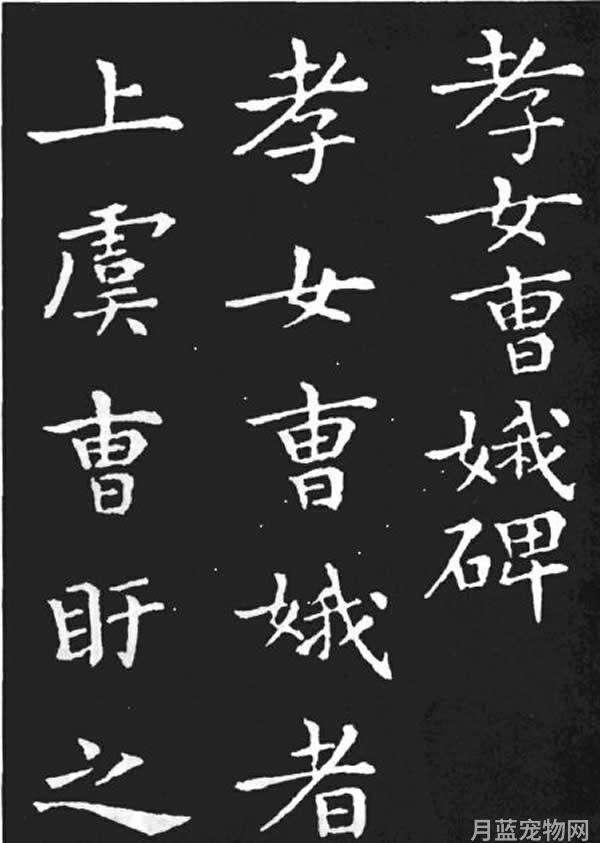 孝女曹娥碑
孝女曹娥者
上虞曹盱之
月蓝宠物网